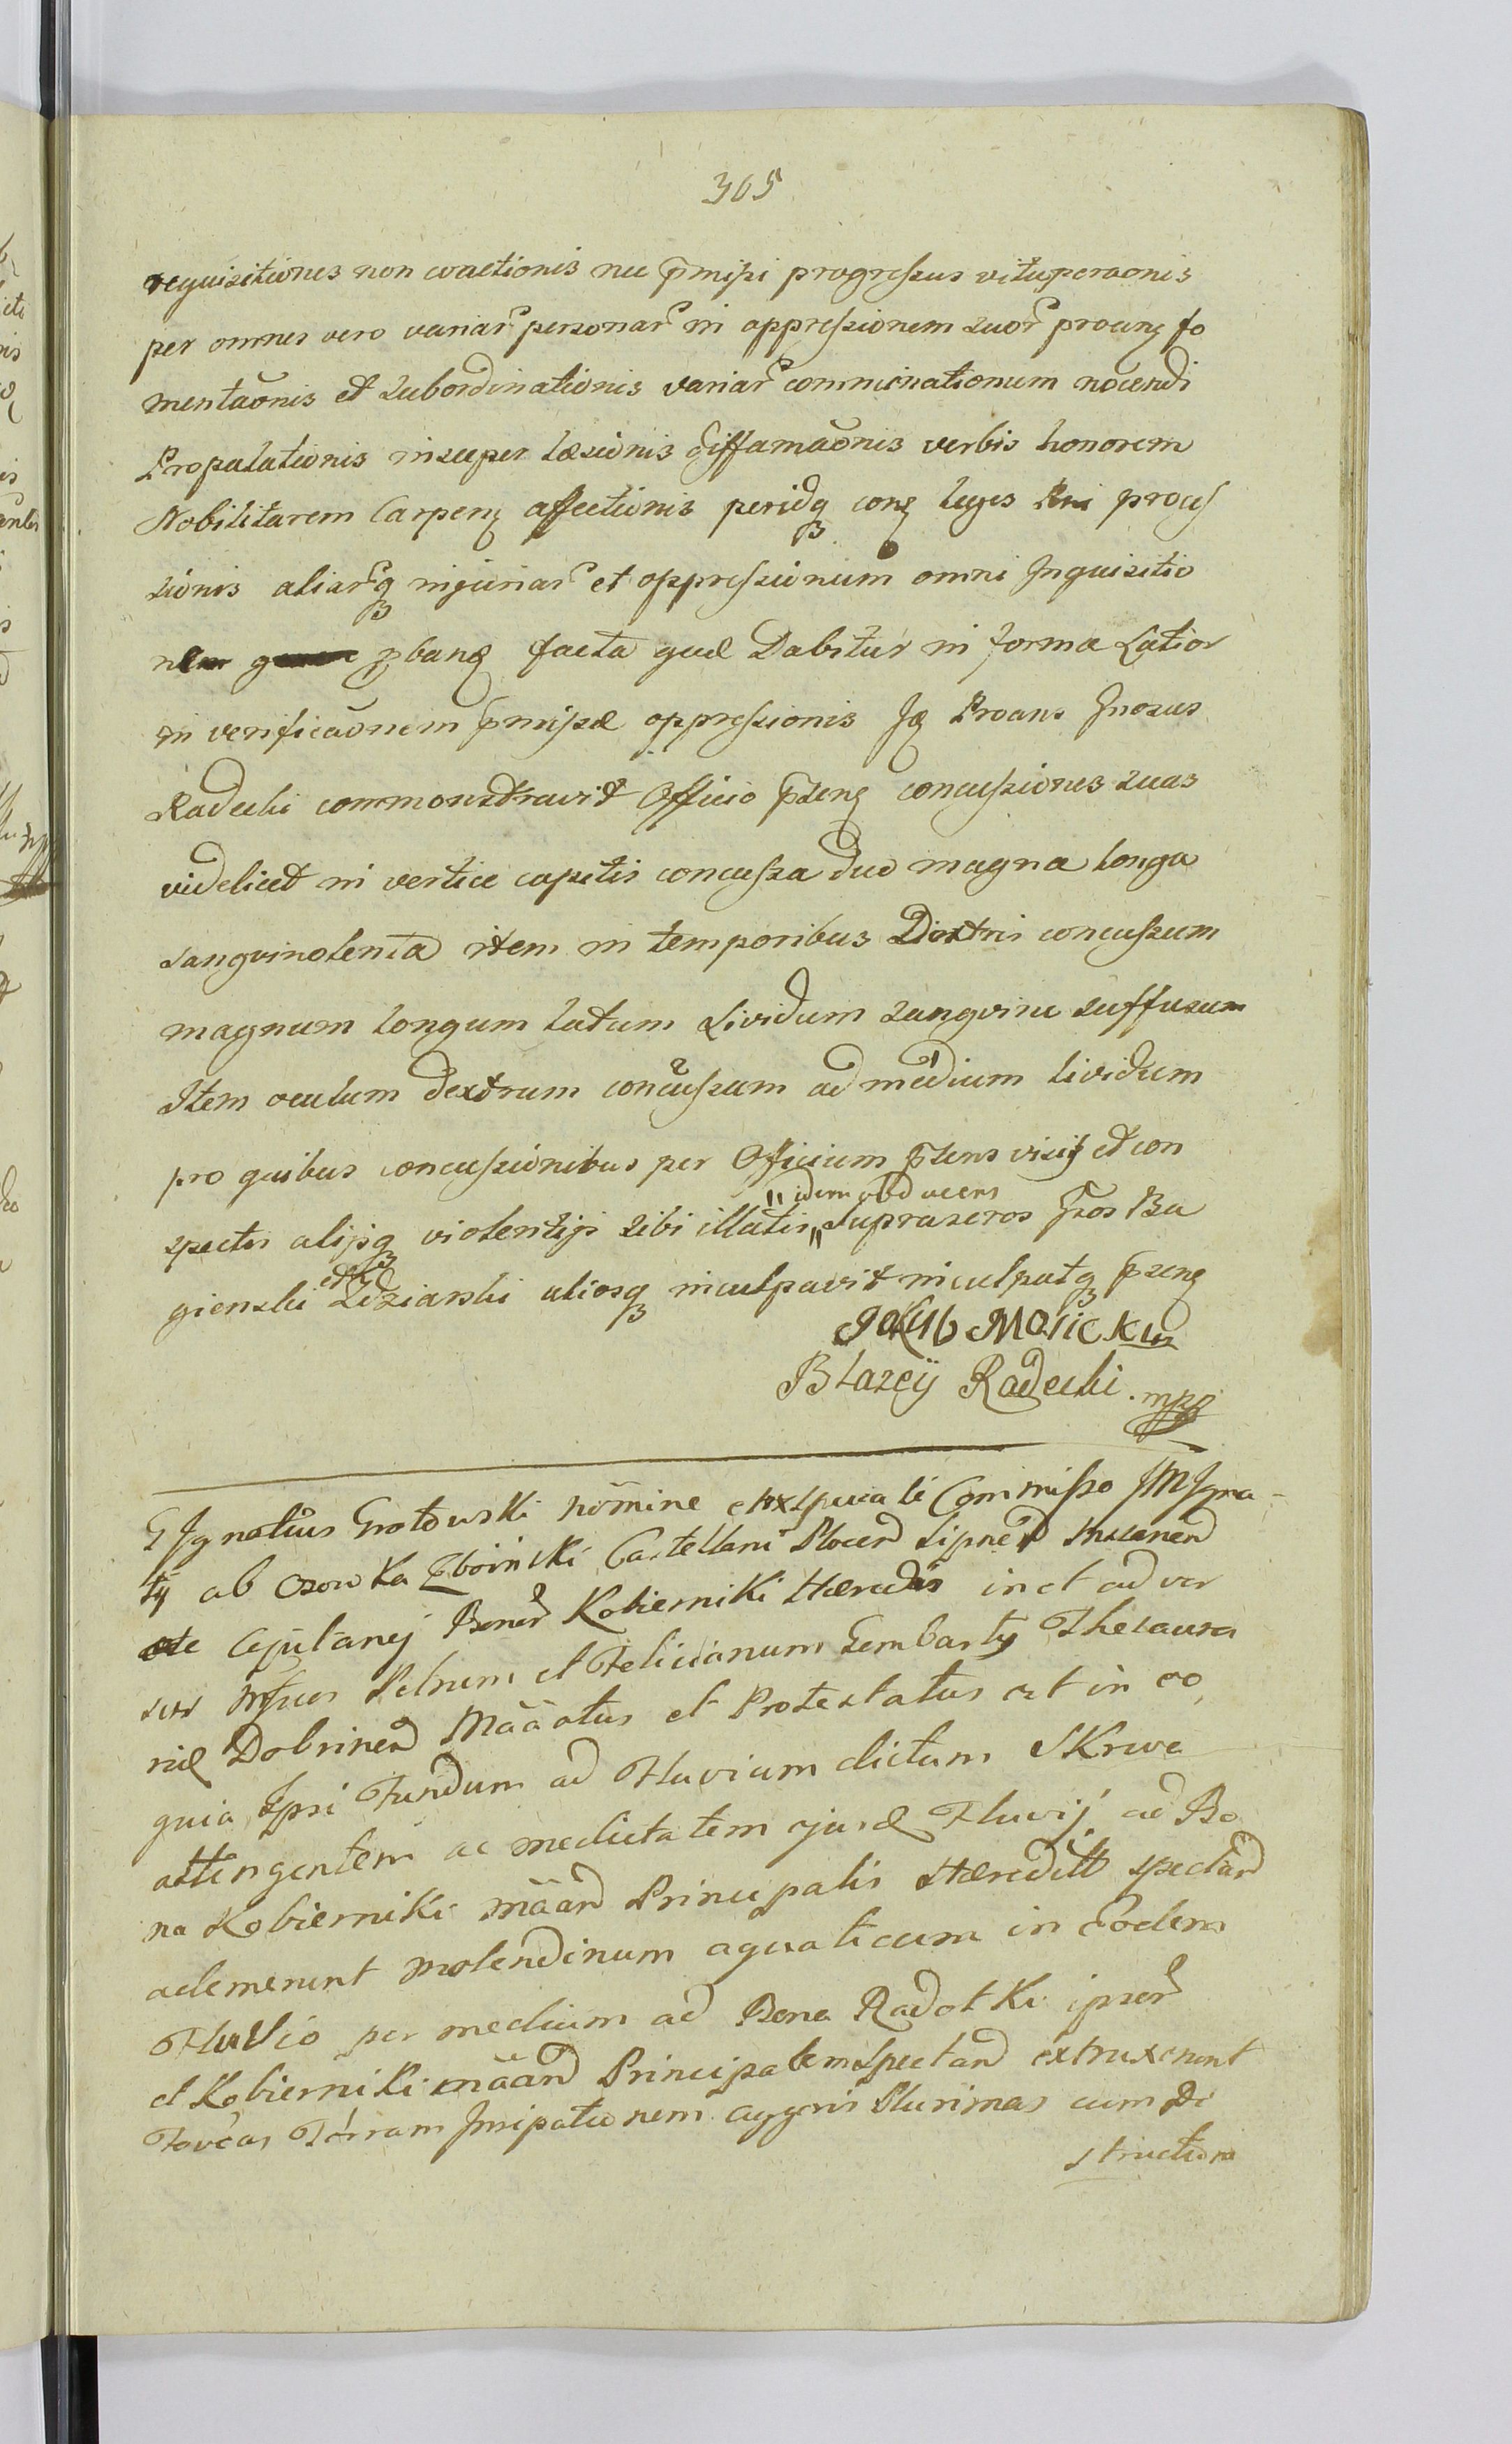 365
requisitiones non coactionis nec p̄missi progressus vituperaonis
per omnes vero variar personar in oppressionem suor procurą fo
mentaõnis et subordinationis variar comminationum nocendi
Propalationis insuper læsionis diffamaõnis verbis honorem
Nobilitarem Carpenę affectionis peridq conę leges Rni proces
sionis aliarq injuriar et oppressionum omni Inquisitio
nem pbanę facta quæ Dabitur in forma Latior
in verificaõnem p̄missæ oppressionis Proans Gnosus
Radecki commonstravit Officio p̄senę concussiones suas
videlicet in vertice capitis concussa duo magna longa
sangvinolenta item in temporibus Dextris concussum
magnum longum latum lividum sangvine suffusum
Item oculum dextrum concussum ad medium lividum
pro quibus concussionibus per Officium p̄sens visis et con
spectis alijsq violentijs sibi illatis " idem obducens " supraseros Gsos Ba
gienski et Zdziarski aliosq inculpavit inculpatq p̄senę
Jakub Mosicki
Błazeÿ Radecki mpp
G Ignatius Grotowski nõmine et exspeciali Commisso JM Igna-
tij ab Osowka Zboinski Castellani Plocen Lipnen
Capitanej Bonor Kobierniki Hæredis in et adver
sus Petrum et Felicianum Gembartÿ Thesaura
riæ Dobrinen Mããatus et Protestatus est in eo,
quia Ipsi Fundum ad Fluvium dictum Skrwa
attingentem ac medietatem ejusd Fluvij ad Bo
na Kobierniki mãan Principalis Hæreditt spectan
ademerunt molendinum aquaticum in Eodem
Fluvio per medium ad Bona Radotki ipsor
et Kobierniki mããn Principalem spectan extruxerunt
Foveas Terram aggeris Plurimas cum De
structione